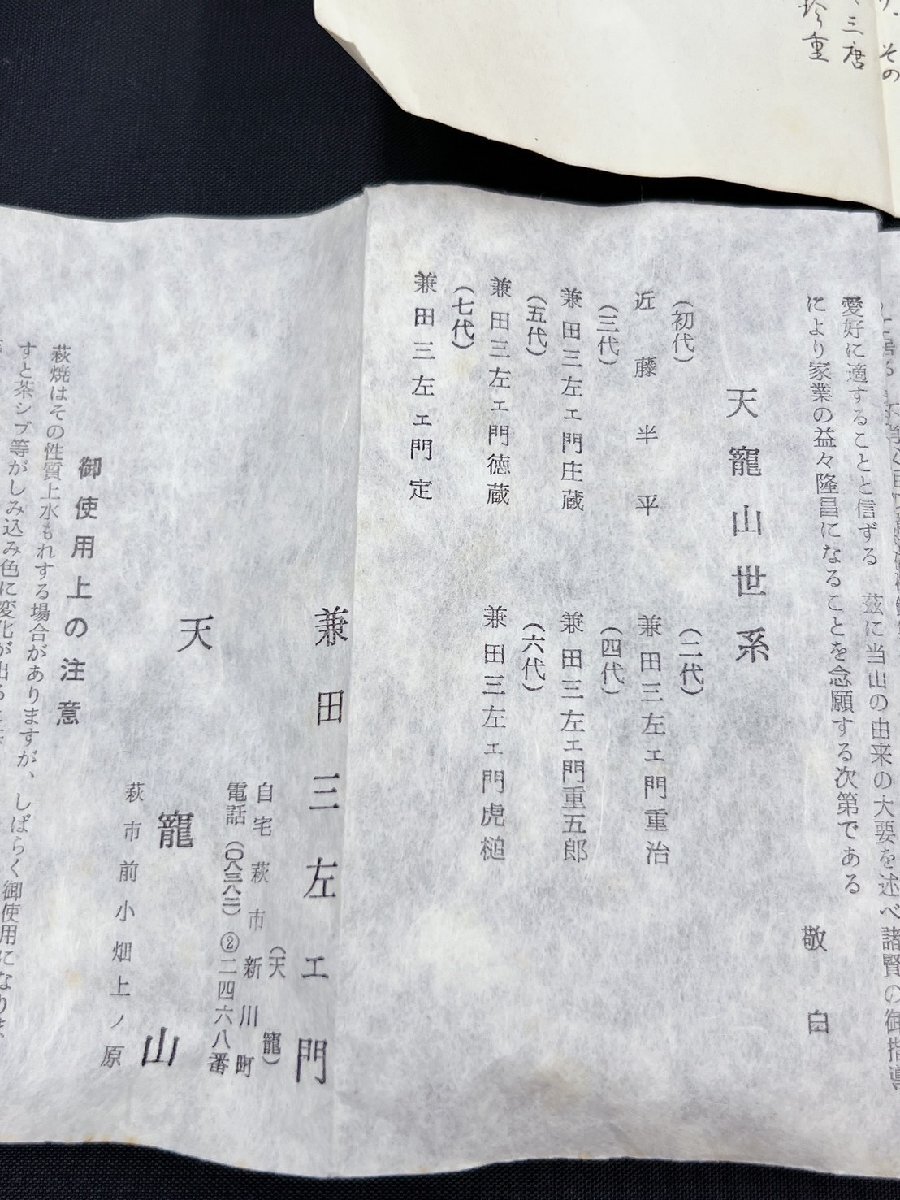 その
三唐
珍重
茲に当山の由来の大要を述べ諸賢の御指導
愛好に適することと信ずる
により家業の益々隆昌になることを念願する次第である
敬白
天寵山世系
(初代)
近藤半平
(二代)
兼田三左ェ門重治
(三代)
兼田三左ェ門庄蔵
(四代)
兼田三左ェ門重五郎
(五代)
兼田三左ェ門徳蔵
(六代)
兼田三左ェ門虎槌
(七代)
兼田三左ェ門定
兼田三左エ門
(天寵)
自宅萩市新川町
電話(〇八三八二)②二四六八番
天寵山
萩市前小畑上ノ原
御使用上の注意
萩焼はその性質上水もれする場合がありますが、しばらく御使用になりま
すと茶シブ等がしみ込み色に変化が出